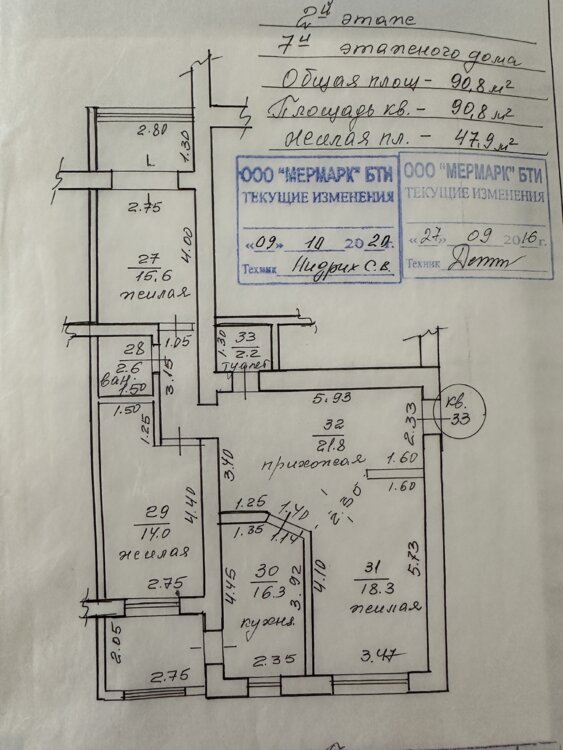 2й этаж
7й этажного дома
Общая площ - 90,8 м²
Площадь кв. - 90,8 м²
Жилая пл. - 47,9 м²
ООО "МЕРМАРК" БТИ
ТЕКУЩИЕ ИЗМЕНЕНИЯ
«09» 10 2020г.
Техник Нидрих С.В.
ООО "МЕРМАРК" БТИ
ТЕКУЩИЕ ИЗМЕНЕНИЯ
«27» 09 2016г.
Техник
2.80
1.30
L
2.75
4.00
27
15,6
жилая
1.05
28
2.6
ван.
1.50
3.15
1.30
33
2.2
туалет
1.50
1.25
5.93
32
21.8
прихожая
2.33
кв.
33
3.40
1.60
1.60
2.30
29
14.0
жилая
4.40
1.25
1.35
1.40
1.14
2.75
4.45
30
16.3
кухня
3.92
4.10
31
18.3
жилая
5.73
2.05
2.75
2.35
3.47